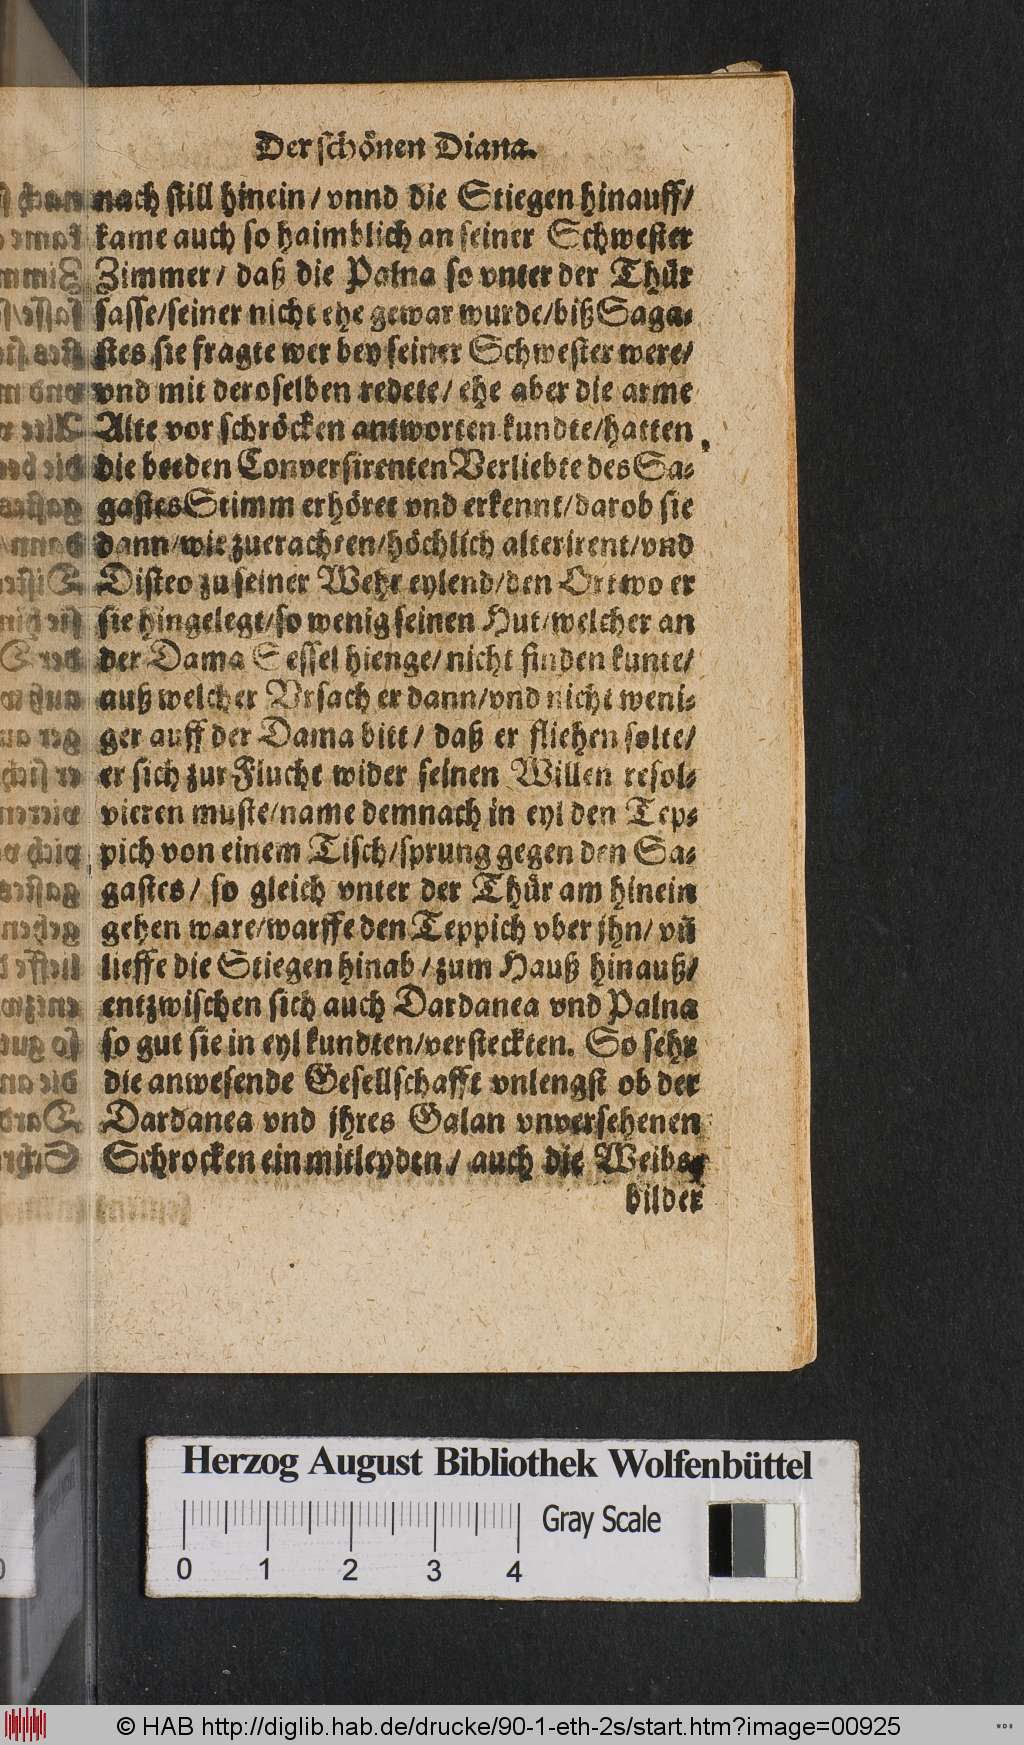 Der schönen Diana.
nach still hinein / vnnd die Stiegen hinauff /
kame auch so haimblich an seiner Schwester
Zimmer / daß die Palna so vnter der Thür
sasse / seiner nicht ehe gewar wurde / biß Saga-
stes sie fragte wer bey seiner Schwester were /
vnd mit deroselben redete / ehe aber die arme
Alte vor schröcken antworten kundte / hatten
die beeden Conversirenten Verliebte des Sa-
gastes Stimm erhöret vnd erkennt / darob sie
dann / wie zuerachten / höchlich alterirent / vnd
Disteo zu seiner Wehr eylend / den Ort wo er
sie hingelegt / so wenig seinen Hut / welcher an
der Dama Sessel hienge / nicht finden kunte /
auß welcher Vrsach er dann / vnd nicht weni-
ger auff der Dama bitt / daß er fliehen solte /
er sich zur Flucht wider seinen Willen resol-
vieren muste / name demnach in eyl den Tep-
pich von einem Tisch / sprung gegen den Sa-
gastes / so gleich vnter der Thür am hinein
gehen ware / warffe den Teppich vber jhn / vñ
lieffe die Stiegen hinab / zum Hauß hinauß /
entzwischen sich auch Dardanea vnd Palna
so gut sie in eyl kundten / versteckten. So sehr
die anwesende Gesellschafft vnlengst ob der
Dardanea vnd jhres Galan vnversehenen
Schrocken ein mitleyden / auch die Weibs-
bilder
Herzog August Bibliothek Wolfenbüttel
0 1 2 3 4 Gray Scale
© HAB http://diglib.hab.de/drucke/90-1-eth-2s/start.htm?image=00925